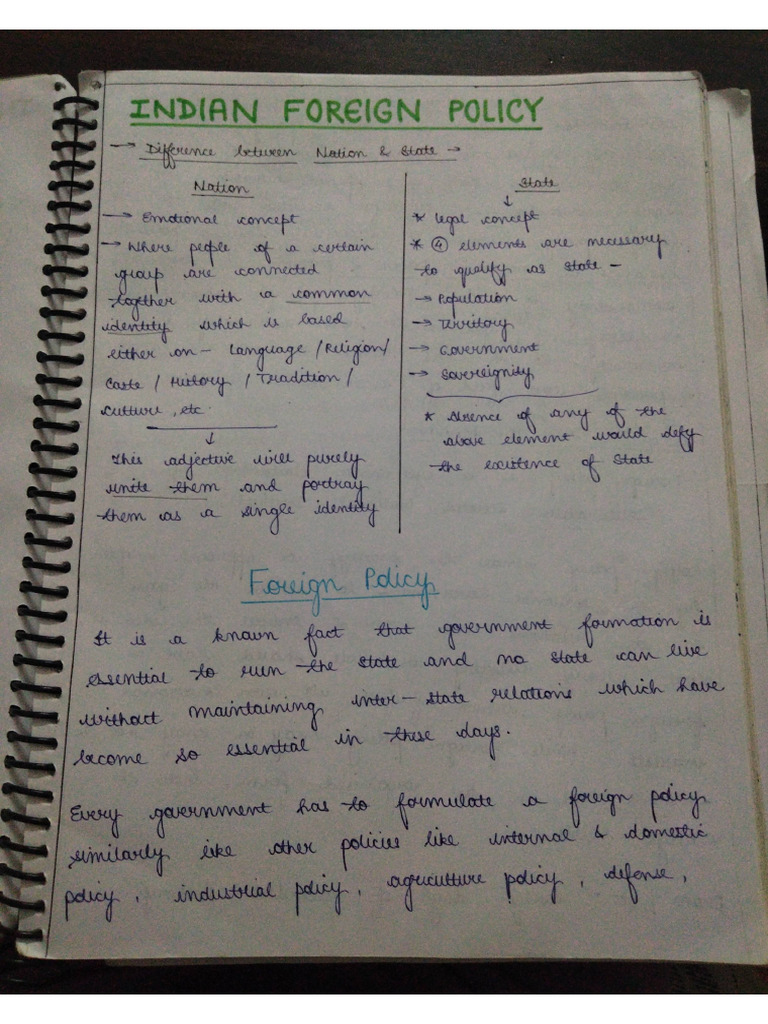 INDIAN FOREIGN POLICY
→ Difference between Nation & State →
Nation
→ Emotional concept
→ Where people of a certain
group are connected
together with a common
identity which is based
either on – Language / Religion /
Caste / History / Tradition /
Culture, etc.
↓
This adjective will purely
unite them and portray
them as a single identity
State
↓
* Legal concept
* ④ elements are necessary
to qualify as State –
→ Population
→ Territory
→ Government
→ Sovereignity
* Absence of any of the
above element would defy
the existence of State
Foreign Policy
It is a known fact that government formation is
essential to run the state and no state can live
without maintaining inter – state relations which have
become so essential in these days.
Every government has to formulate a foreign policy
similarly like other policies like internal & domestic
policy, industrial policy, agriculture policy, defense,